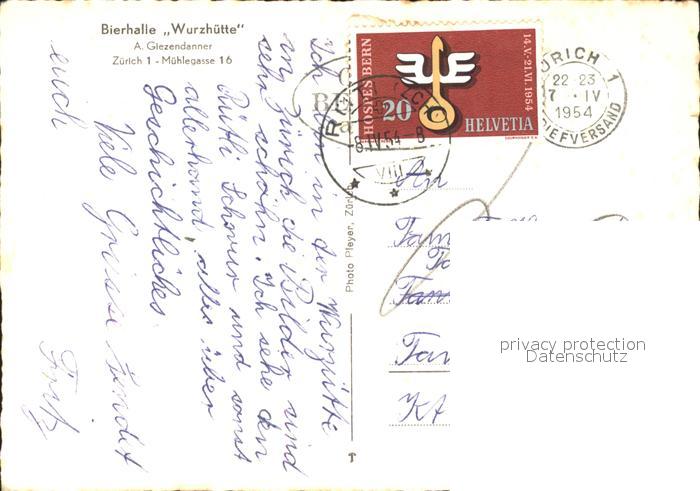 Bierhalle „Wurzhütte“
A. Giezendanner
Zürich 1 - Mühlegasse 16
Ich bin in der Wurzhütte
in Zürich die Bilder sind
sehr schöhn. Ich sehe den
Rütli Schwur und sonst
allerhand, alles über
Geschichtliches
Viele Grüsse sendet
euch Fritz
Photo Pleyer, Zürich
HOSPES BERN
14.V.-21.VI.1954
20
HELVETIA
ZÜRICH 1
22-23
7.IV
1954
BRIEFVERSAND
8.IV.54-8
VIII
An
Fam
Fam
Kt
privacy protection
Datenschutz